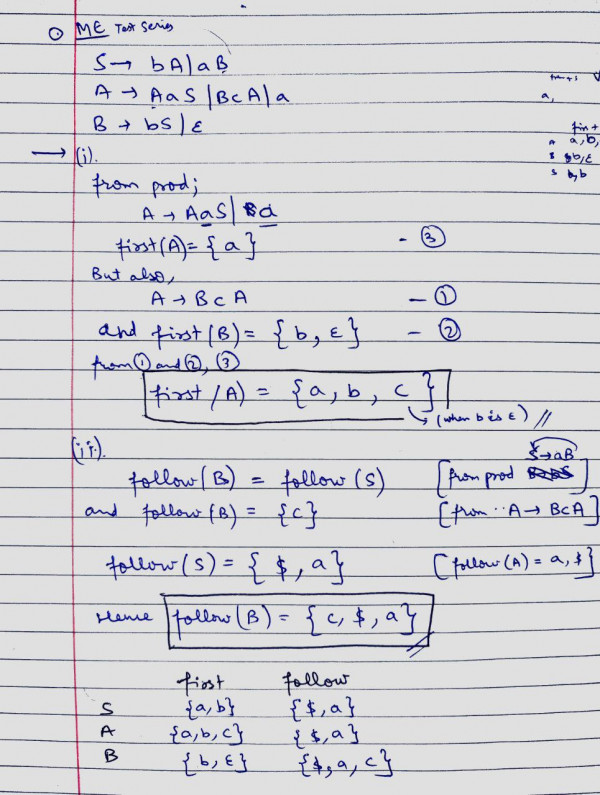 ME Test Series
S → bA|aB
A → AaS|BcA|a
B → bS|ε
a,
a, b,
b, ε
b, b
→ (i).
from prod;
A → AaS| a
first(A) = {a} - ③
But also,
A → BcA - ①
and first(B) = {b, ε} - ②
from ① and ②, ③
first(A) = {a, b, c}
↳ (when b is ε) //
(ii).
follow(B) = follow(S) [from prod S→aB
and follow(B) = {c} [from ∵ A → BcA]
follow(S) = {$, a} [follow(A) = a, $]
Hence follow(B) = {c, $, a} //
first follow
S {a, b} {$, a}
A {a, b, c} {$, a}
B {b, ε} {$, a, c}